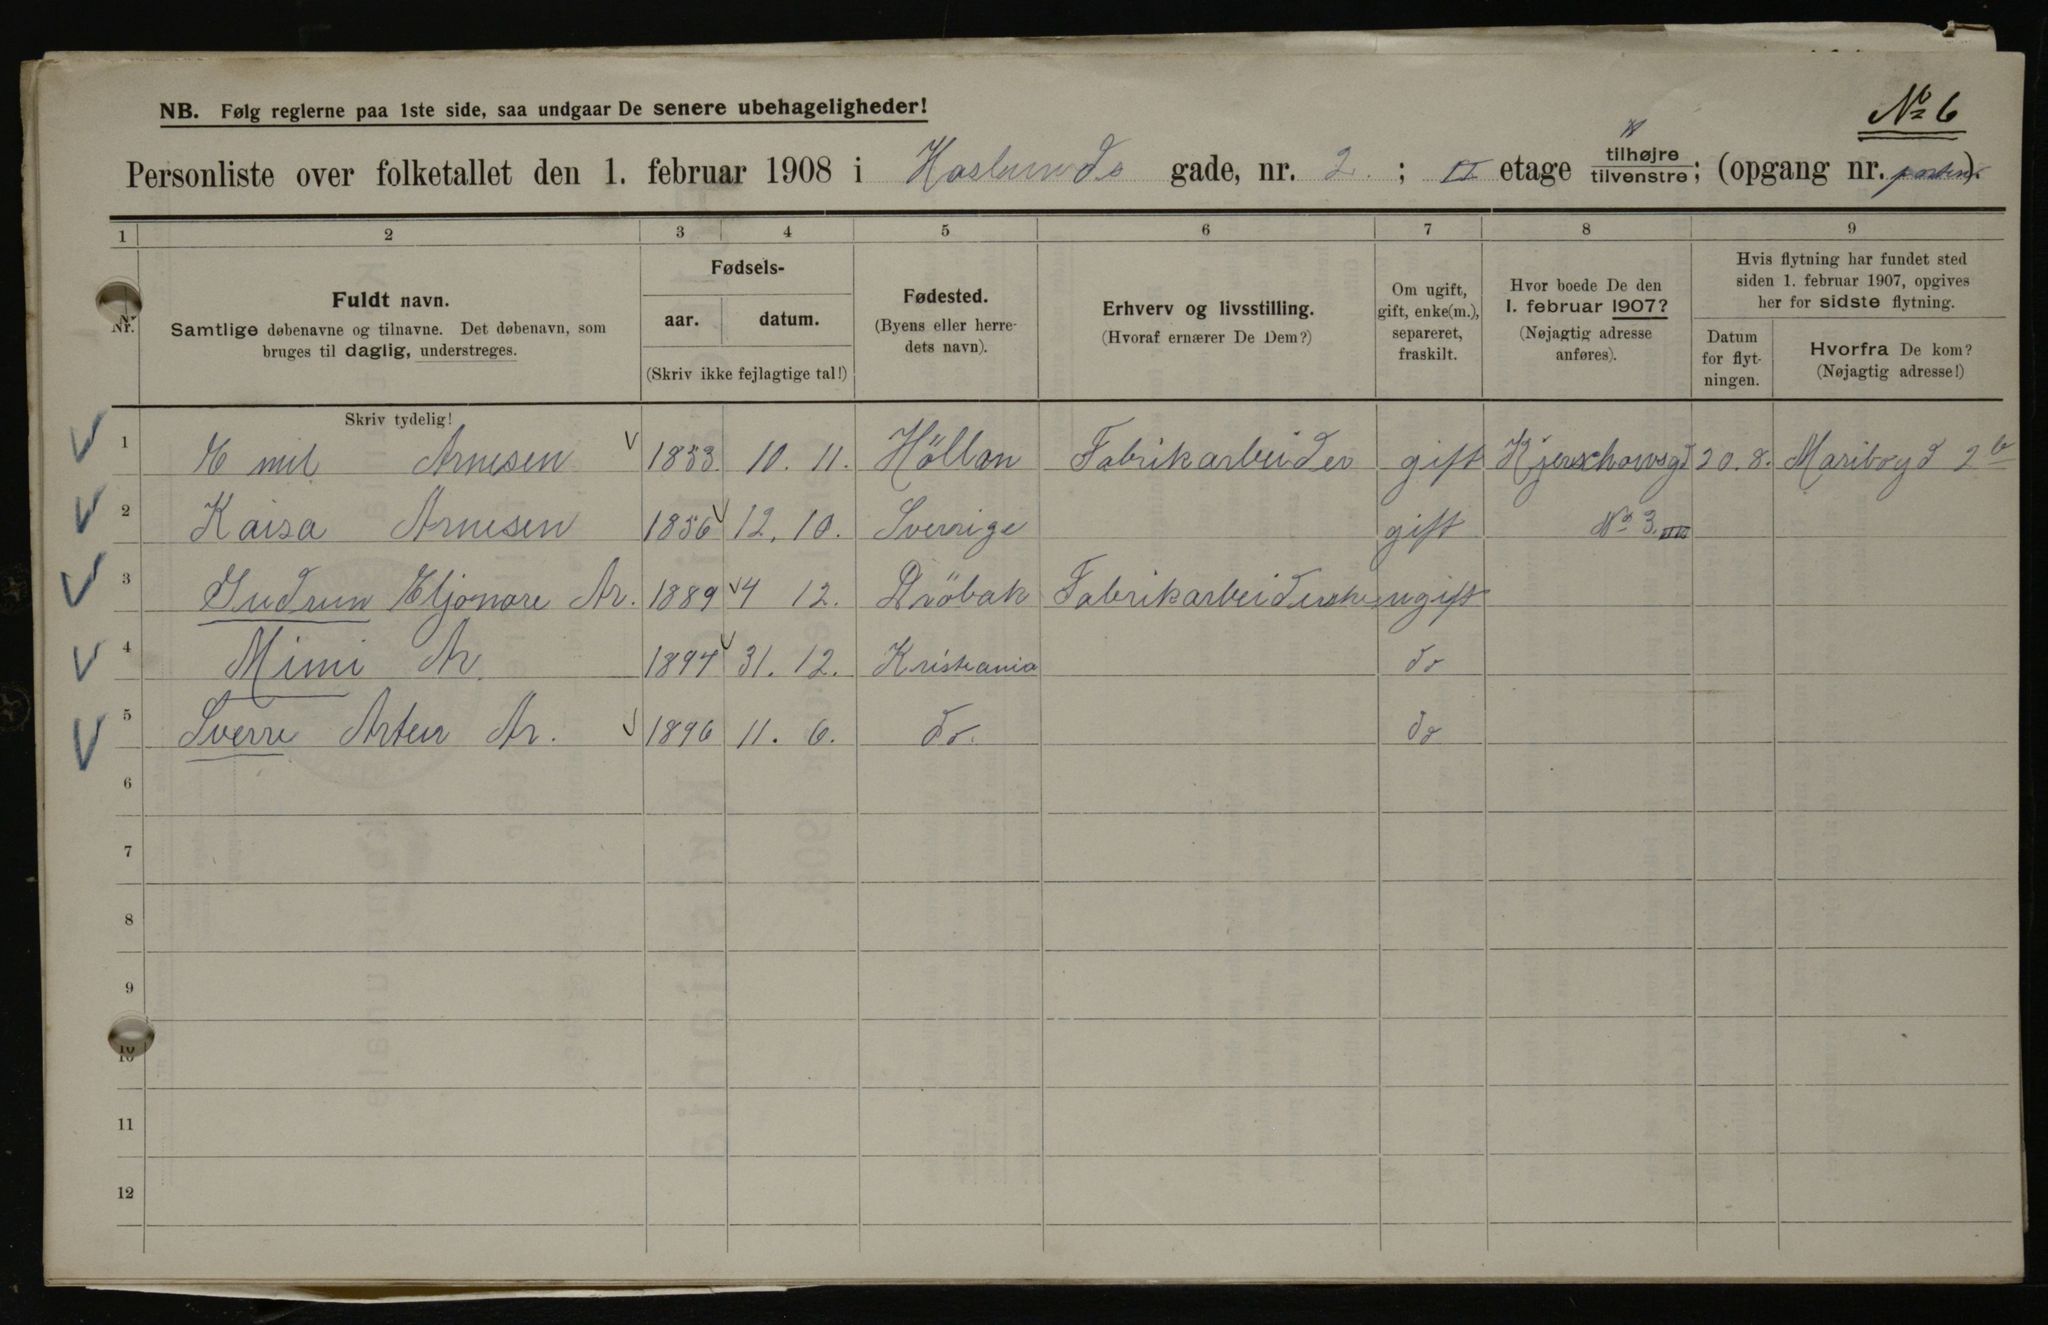 NB. Følg reglerne paa 1ste side, saa undgaar De senere ubehageligheder!
No 6
Personliste over folketallet den 1. februar 1908 i Haslunds gade, nr. 2. ; II etage tilhøjre tilvenstre; (opgang nr. porten).
1 2 3 4 5 6 7 8 9
Nr.
Fuldt navn.
Samtlige døbenavne og tilnavne. Det døbenavn, som
bruges til daglig, understreges.
Fødsels-
aar. datum.
(Skriv ikke fejlagtige tal!)
Fødested.
(Byens eller herre-
dets navn).
Erhverv og livsstilling.
(Hvoraf ernærer De Dem?)
Om ugift,
gift, enke(m.),
separeret,
fraskilt.
Hvor boede De den
1. februar 1907?
(Nøjagtig adresse
anføres).
Hvis flytning har fundet sted
siden 1. februar 1907, opgives
her for sidste flytning.
Datum
for flyt-
ningen.
Hvorfra De kom?
(Nøjagtig adresse!)
Skriv tydelig!
1 Emil Arnesen 1853 10. 11. Höllen Fabrikarbeider gift Kjerschowsgd 20. 8. Maribogd 2b
2 Kaisa Arnesen 1856 12. 10. Sverrige gift No 3. III
3 Gudrun Eljonore Ar. 1889 4 12. Dröbak Fabrikarbeiderske ugift
4 Mimi Ar. 1894 31. 12. Kristiania do
5 Sverre Arteur Ar. 1896 11. 6. do. do
6
7
8
9
10
11
12